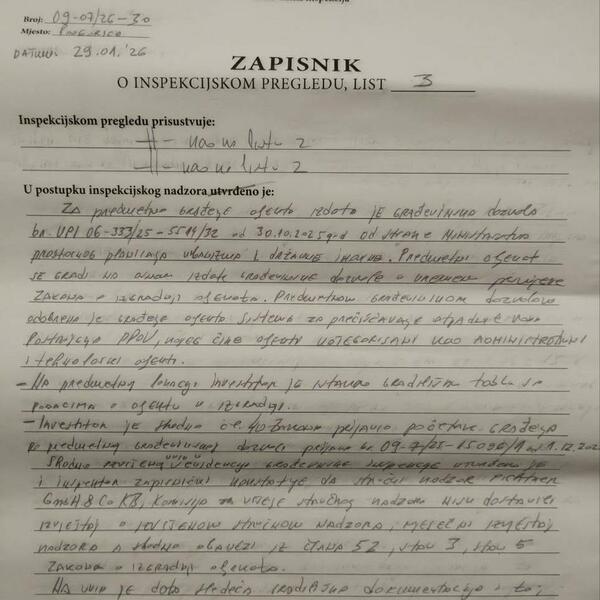 inspekcija
Broj: 09-07/26-30
Mjesto: Podgorica
DATUM: 29.01.'26
ZAPISNIK
O INSPEKCIJSKOM PREGLEDU, LIST 3
Inspekcijskom pregledu prisustvuje:
-||- kao na listu 2
-||- kao na listu 2
U postupku inspekcijskog nadzora utvrđeno je:
Za predmetno građenje objekta izdata je građevinska dozvola
br. UPI 06-333/25-5519/32 od 30.10.2025 god od strane Ministarstva
prostornog planiranja urbanizma i državne imovine. Predmetni objekat
se gradi na osnovu izdate građevinske dozvole u vremenu primjene
Zakona o izgradnji objekata. Predmetnom građevinskom dozvolom
odobreno je građenje objekta sistema za prečišćavanje otpadnih voda
Postrojenje PPOV, kojeg čine objekti kategorisani kao administrativni
i tehnološki objekti.
- Na predmetnoj lokaciji investitor je istakao gradilišnu tablu sa
podacima o objektu u izgradnji.
- Investitor je shodno čl. 40 Zakona prijavio početak građenja
po predmetnoj građevinskoj dozvoli prijava br. 09-7/25-15096/1 od 1.12.202
Shodno izvršenom uvidu u evidenciju građevinske inspekcije utvrđeno je
i inspektor zapisnički konstatuje da stručni nadzor
GmbH & Co KB, Komisija za vršenje stručnog nadzora nisu dostavili
izvještaj o izvršenom stručnom nadzoru, mjesečni izvještaj
nadzora a shodno obavezi iz člana 52, stav 3, stav 5
Zakona o izgradnji objekata.
Na uvid je data sledeća gradilišna dokumentacija i to;